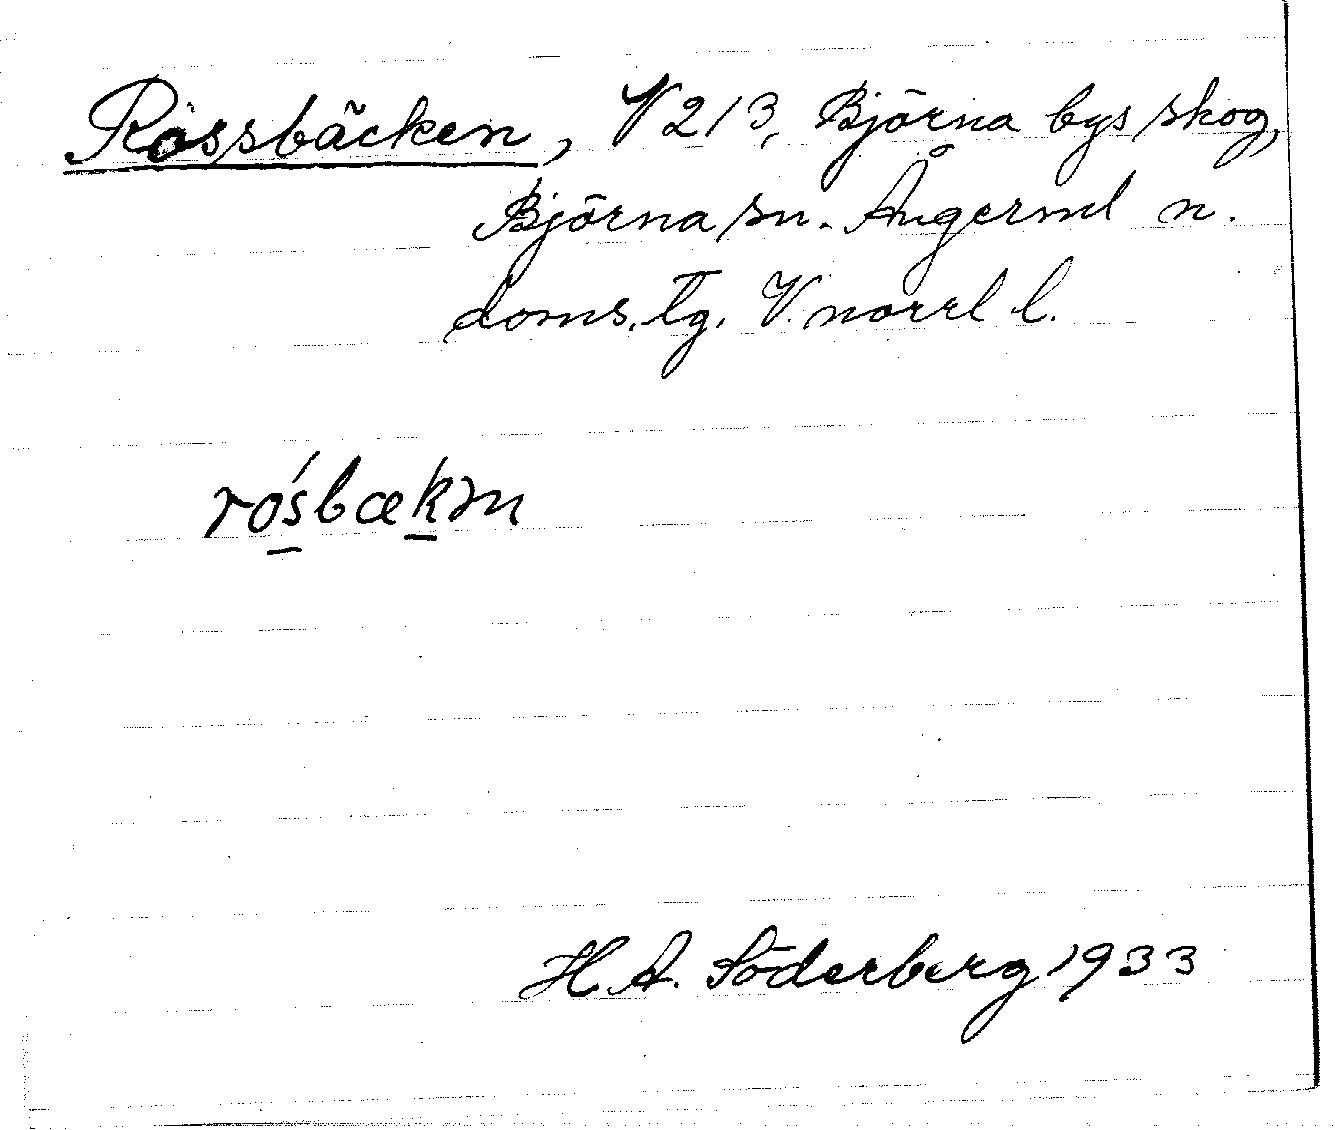 Rössbäcken, V 213, Björna bys skog,
Björna sn. Ångerml n.
doms. tg. V. norrl l.
rósbækən
H A. Söderberg 1933